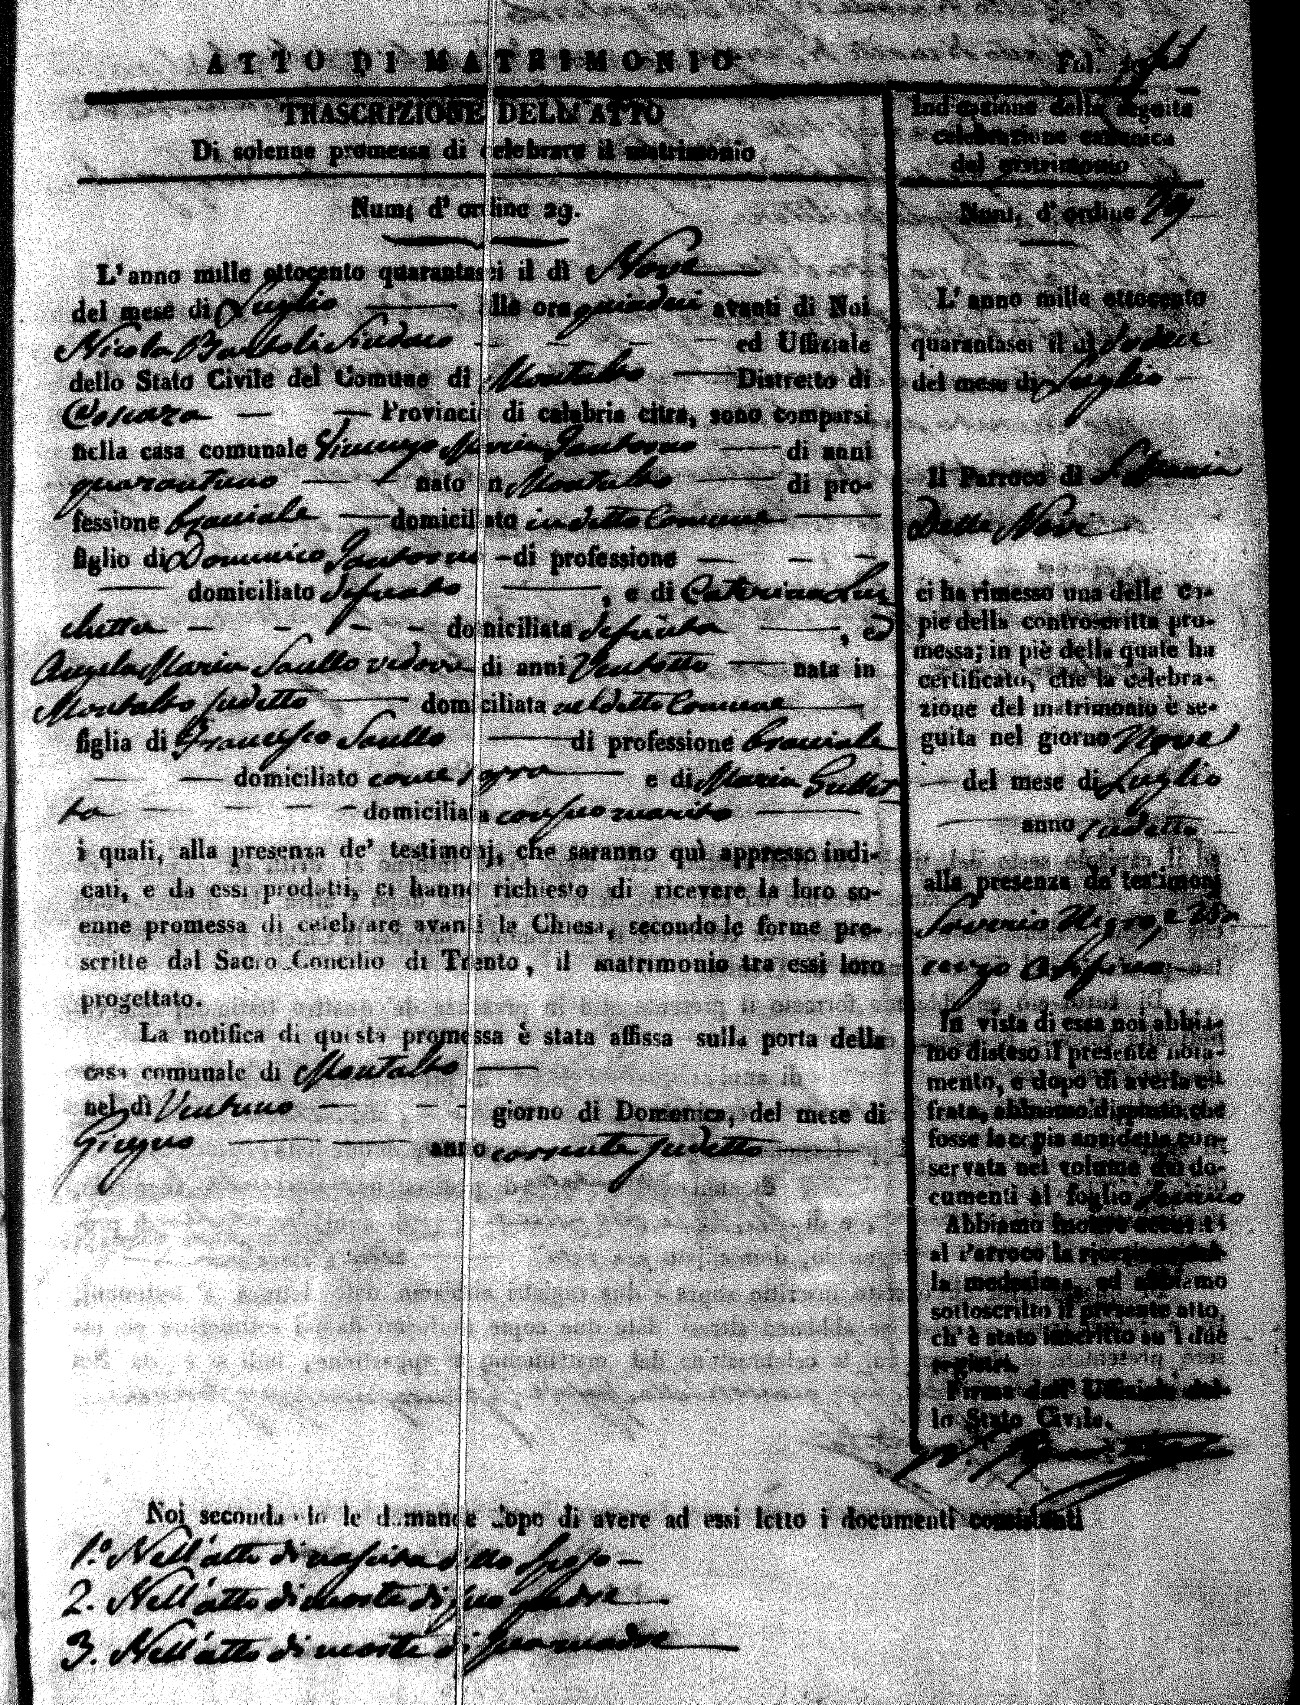 ATTO DI MATRIMONIO
Fol.
TRASCRIZIONE DELL'ATTO
Di solenne promessa di celebrare il matrimonio
Num. d'ordine 29.
L'anno mille ottocento quarantasei il dì Nove
del mese di Luglio alle ore quindici avanti di Noi
Nicola Bartoli Sindaco ed Uffiziale
dello Stato Civile del Comune di Montalto Distretto di
Cosenza Provincia di calabria citra, sono comparsi
nella casa comunale Vincenzo Maria di anni
quarantuno nato in Montalto di pro-
fessione bracciale domiciliato in detto Comune
figlio di Domenico di professione
domiciliato defunto, e di Caterina Lu
chetta domiciliata defunta, ed
Angela Maria Saullo vedova di anni Ventotto nata in
Montalto sudetto domiciliata nel detto Comune
figlia di Francesco Saullo di professione bracciale
domiciliato come sopra e di Maria
ta domiciliata con suo marito
i quali, alla presenza de' testimonj, che saranno quì appresso indi-
cati, e da essi prodotti, ci hanno richiesto di ricevere la loro so-
enne promessa di celebrare avanti la Chiesa, secondo le forme pre-
scritte dal Sacro Concilio di Trento, il matrimonio tra essi loro
progettato.
La notifica di questa promessa è stata affissa sulla porta della
casa comunale di Montalto
nel dì Ventuno giorno di Domenica, del mese di
Giugno anno corrente sudetto
Noi secondando le domande dopo di avere ad essi letto i documenti consistenti
1.° Nell'atto di nascita dello sposo
2. Nell'atto di morte di suo padre
3. Nell'atto di morte di sua madre
Indicazione della seguita
celebrazione canonica
del matrimonio
Num. d'ordine 29
L'anno mille ottocento
quarantasei il dì dodici
del mese di Luglio
Il Parroco di S. Maria
Della Nova
ci ha rimesso una delle co-
pie della controscritta pro-
messa; in piè della quale ha
certificato, che la celebra-
zione del matrimonio è se-
guita nel giorno Nove
del mese di Luglio
anno sudetto
alla presenza de' testimonj
Saverio Nigro, e Vin
cenzo
In vista di essa noi abbia-
mo disteso il presente nota-
mento, e dopo di averla ci-
frata, abbiamo disposto che
fosse la copia anzidetta con-
servata nel volume dei do-
cumenti al foglio
Abbiamo inoltre accusata
al Parroco la ricezione del-
la medesima, ed abbiamo
sottoscritto il presente atto,
ch'è stato inscritto su i due
registri.
Firma dell'Uffiziale del-
lo Stato Civile.